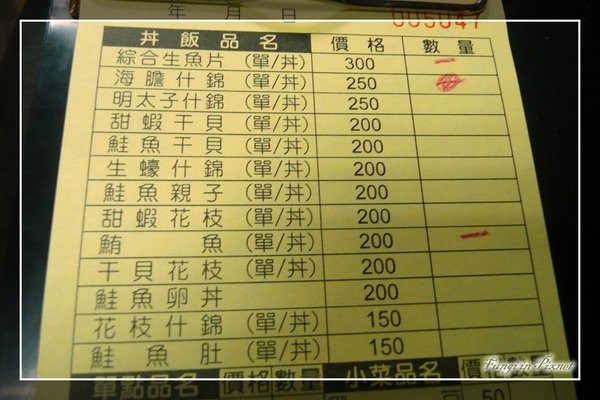 年 月 日 005047
丼飯品名 價格 數量
綜合生魚片 (單/丼) 300
海膽什錦 (單/丼) 250
明太子什錦 (單/丼) 250
甜蝦干貝 (單/丼) 200
鮭魚干貝 (單/丼) 200
生蠔什錦 (單/丼) 200
鮭魚親子 (單/丼) 200
甜蝦花枝 (單/丼) 200
鮪魚 (單/丼) 200
干貝花枝 (單/丼) 200
鮭魚卵丼 200
花枝什錦 (單/丼) 150
鮭魚肚 (單/丼) 150
單點品名 價格 數量 小菜品名 價格 數量
50